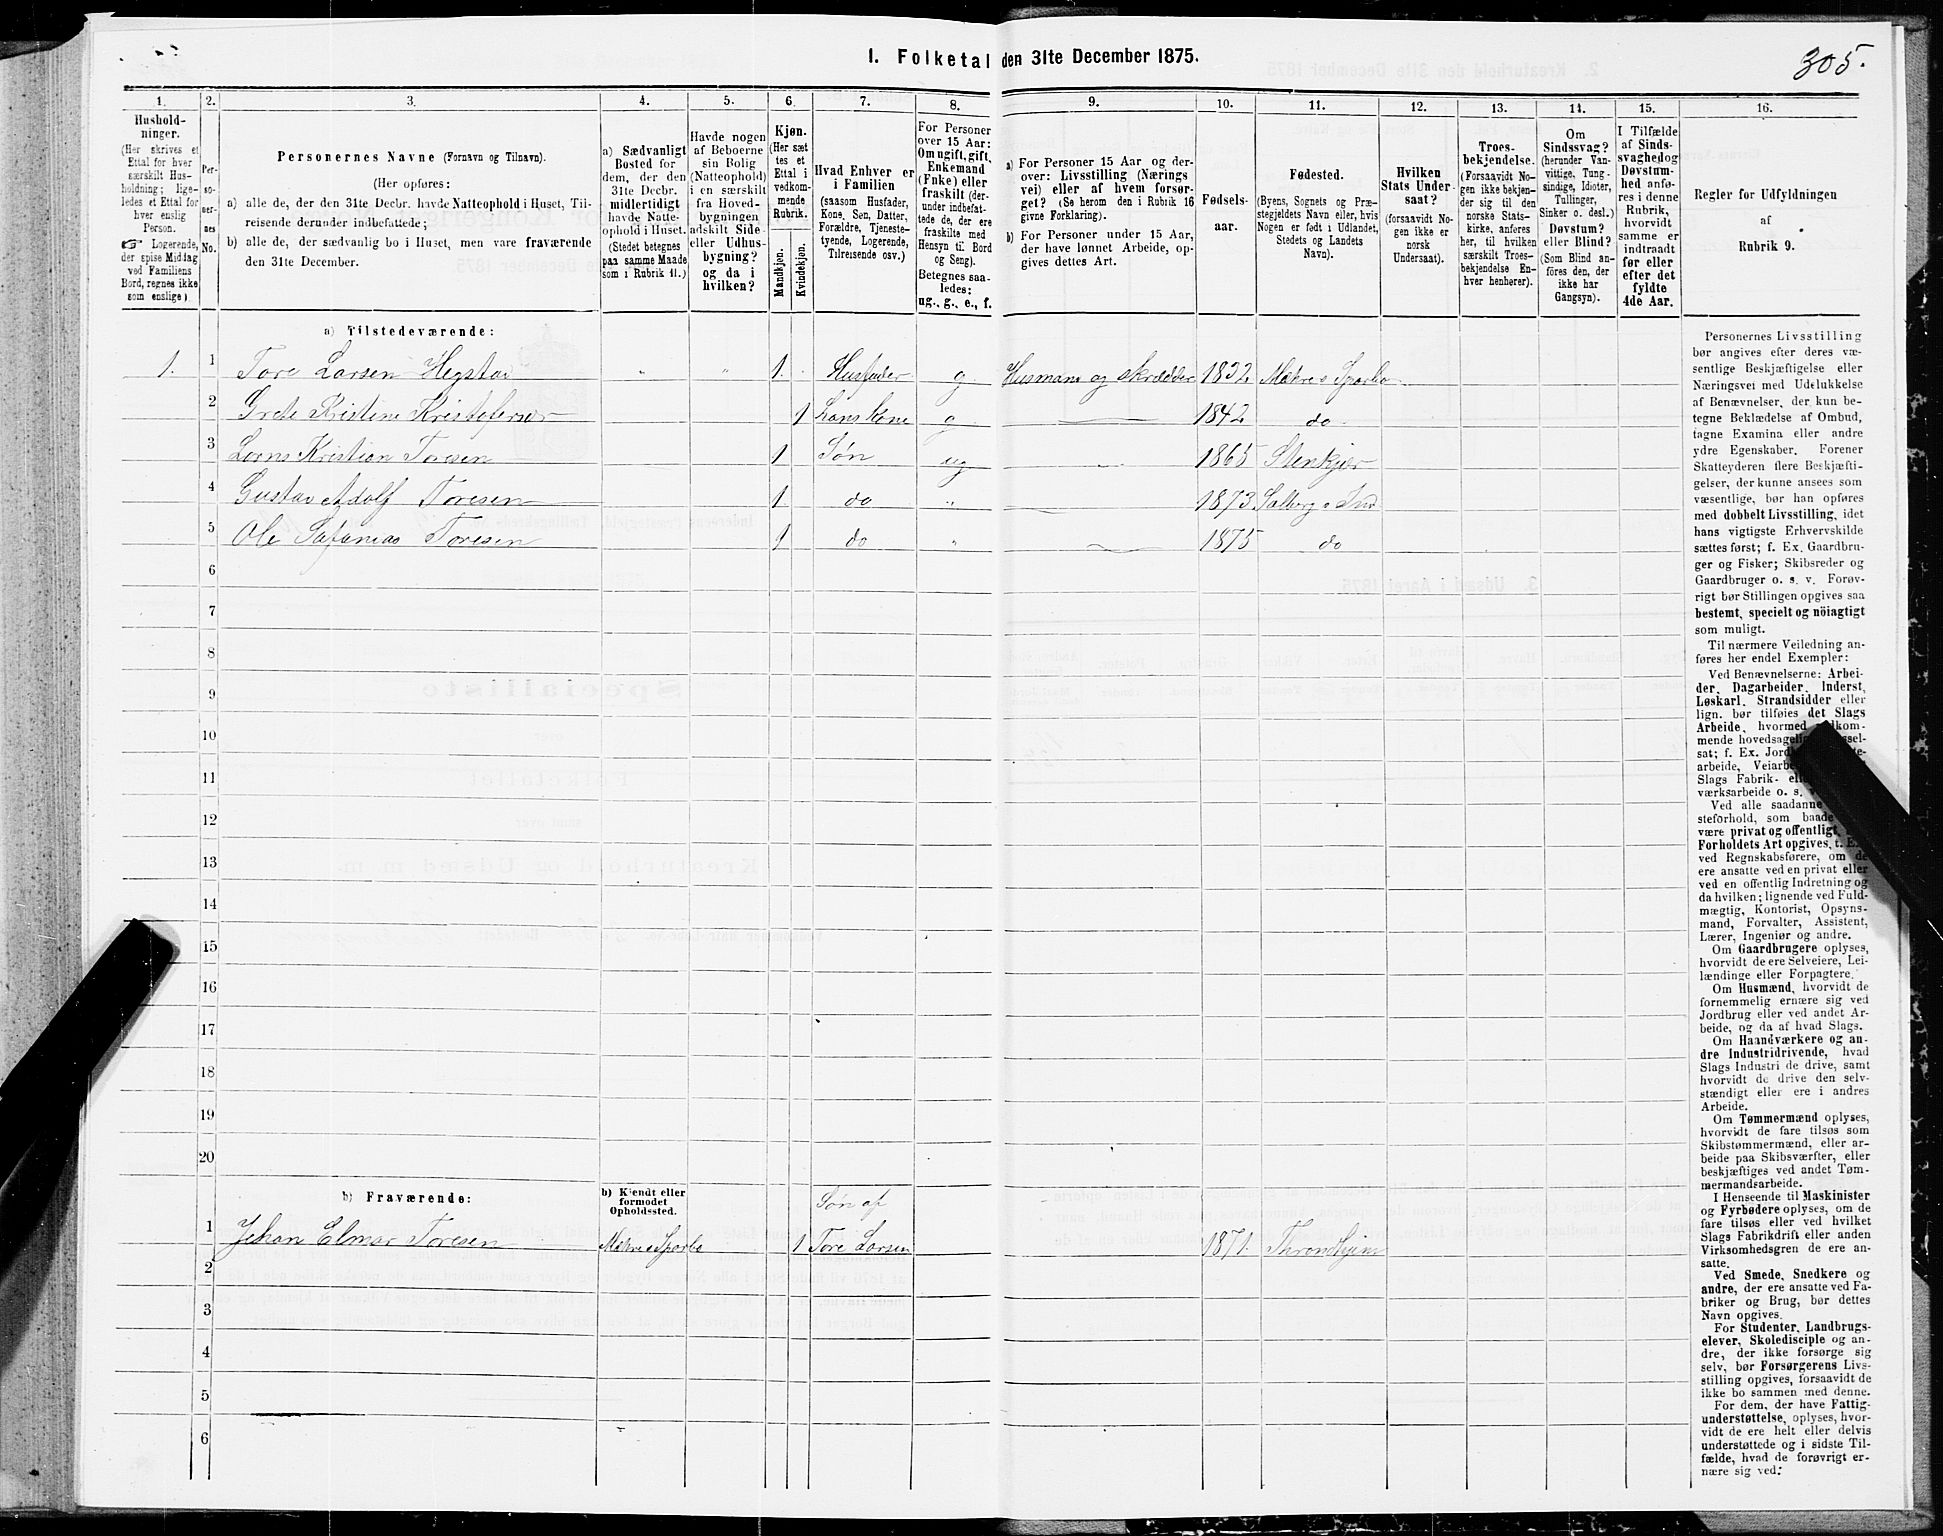 I. Folketal den 31te December 1875.
305.
1.
Hushold-
ninger.
(Her skrives et
Ettal for hver
særskilt Hus-
holdning; lige-
ledes et Ettal for
hver enslig
Person.
☞ Logerende,
der spise Middag
ved Familiens
Bord, regnes ikke
som enslige)
2.
Per-
so-
ner-
nes
No.
3.
Personernes Navne (Fornavn og Tilnavn).
(Her opføres:
a) alle de, der den 31te Decbr. havde Natteophold i Huset, Til-
reisende derunder indbefattede;
b) alle de, der sædvanlig bo i Huset, men vare fraværende
den 31te December.
4.
a) Sædvanligt
Bosted for
dem, der den
31te Decbr.
midlertidigt
havde Natte-
ophold i Huset.
(Stedet betegnes
paa samme Maade
som i Rubrik 11.)
5.
Havde nogen
af Beboerne
sin Bolig
(Natteophold)
i en særskilt
fra Hoved-
bygningen
adskilt Side-
eller Udhus-
bygning?
og da i
hvilken?
6.
Kjøn.
(Her sæt
tes et
Ettal i
vedkom-
mende
Rubrik.
Mandkjøn.
Kvindekjøn.
7.
Hvad Enhver er
i Familien
(saasom Husfader,
Kone, Søn, Datter,
Forældre, Tjeneste-
tyende, Logerende,
Tilreisende osv.)
8.
For Personer
over 15 Aar:
Om ugift, gift,
Enkemand
(Enke) eller
fraskilt (der-
under indbefat-
tede de, der ere
fraskilte med
Hensyn til Bord
og Seng).
Betegnes saa-
ledes:
ug., g., e., f.
9.
a) For Personer 15 Aar og der-
over: Livsstilling (Nærings
vei) eller af hvem forsør-
get? (Se herom den i Rubrik 16
givne Forklaring).
b) For Personer under 15 Aar,
der have lønnet Arbeide, op-
gives dettes Art.
10.
Fødsels-
aar.
11.
Fødested.
(Byens, Sognets og Præ-
stegjeldets Navn eller, hvis
Nogen er født i Udlandet,
Stedets og Landets
Navn).
12.
Hvilken
Stats Under-
saat?
(forsaavidt No-
gen ikke er
norsk
Undersaat).
13.
Troes-
bekjendelse.
(Forsaavidt No-
gen ikke bekjen-
der sig til den
norske Stats-
kirke, anføres
her, til hvilken
særskilt Troes-
bekjendelse En-
hver henhører).
14.
Om
Sindssvag?
(herunder Van-
vittige, Tung-
sindige, Idioter,
Tullinger,
Sinker o. desl.)
Døvstum?
eller Blind?
(Som Blind an-
føres den, der
ikke har
Gangsyn).
15.
I Tilfælde
af Sinds-
svaghed og
Døvstum-
hed anfø-
res i denne
Rubrik,
hvorvidt
samme er
indtraadt
før eller
efter det
fyldte
4de Aar.
16.
Regler for Udfyldningen
af
Rubrik 9.
a) Tilstedeværende:
1. 1 Tore Larsen Hegstad " " 1. Husfader g Husmand og skrædder 1832 Makre o Sparbo
2 Grete Kristine Kristofersen 1 hans Kone g 1842 do
3 Lorns Kristian Toresen 1 Søn ug 1865 Stenkjær
4 Gustav Adolf Toresen 1. do " 1873
5 Ole Toresen 1 do " 1875 do
6
7
8
9
10
11
12
13
14
15
16
17
18
19
20
b) Fraværende:
b) Kjendt eller
formodet
Opholdssted.
Søn af
1 Johan Elmar Toresen Sparbo 1 Tore Larsen 1871. Throndhjem
2
3
4
5
6
Personernes Livsstilling
bør angives efter deres væ-
sentlige Beskjæftigelse eller
Næringsvei med Udelukkelse
af Benævnelser, der kun be-
tegne Beklædelse af Ombud,
tagne Examina eller andre
ydre Egenskaber. Forener
Skatteyderen flere Beskjæfti-
gelser, der kunne ansees som
væsentlige, bør han opføres
med dobbelt Livsstilling, idet
hans vigtigste Erhvervskilde
sættes først; f. Ex. Gaardbru-
ger og Fisker; Skibsreder og
Gaardbruger o. s. v. Forøv-
rigt bør Stillingen opgives saa
bestemt, specielt og nöiagtigt
som muligt.
Til nærmere Veiledning an-
føres her endel Exempler:
Ved Benævnelserne: Arbei-
der, Dagarbeider, Inderst,
Løskarl, Strandsidder eller
lign. bør tilføies det Slags
Arbeide, hvormed
mende hovedsagelig
sat; f. Ex.
arbeide,
Slags Fabrik-
værksarbeide o. s.
Ved alle saadanne
steforhold, som baade
være privat og offentligt,
Forholdets Art opgives,
ved Regnskabsførere, om de
ere ansatte ved en privat eller
ved en offentlig Indretning og
da hvilken; lignende ved Fuld-
mægtig, Kontorist, Opsyns-
mand, Forvalter, Assistent,
Lærer, Ingeniør og andre.
Om Gaardbrugere oplyses,
hvorvidt de ere Selveiere, Lei-
lændinge eller Forpagtere.
Om Husmænd, hvorvidt de
fornemmelig ernære sig ved
Jordbrug eller ved andet Ar-
beide, og da af hvad Slags.
Om Haandværkere og an-
dre Industridrivende, hvad
Slags Industri de drive, samt
hvorvidt de drive den selv-
stændigt eller ere i andres
Arbeide.
Om Tømmermænd oplyses,
hvorvidt de fare tilsøs som
Skibstømmermænd, eller ar-
beide paa Skibsværfter, eller
beskjæftiges ved andet Tøm-
mermandsarbeide.
I Henseende til Maskinister
og Fyrbødere oplyses, om de
fare tilsøs eller ved hvilket
Slags Fabrikdrift eller anden
Virksomhedsgren de ere an-
satte.
Ved Smede, Snedkere og
andre, der ere ansatte ved Fa-
briker og Brug, bør dettes
Navn opgives.
For Studenter, Landbrugs-
elever, Skoledisciple og an-
dre, der ikke forsørge sig
selv, bør Forsørgerens Livs-
stilling opgives, forsaavidt de
ikke bo sammen med denne.
For dem, der have Fattig-
understøttelse, oplyses, hvor-
vidt de ere helt eller delvis
understøttede og i sidste Til-
fælde, hvad de forøvrigt er-
nære sig ved.